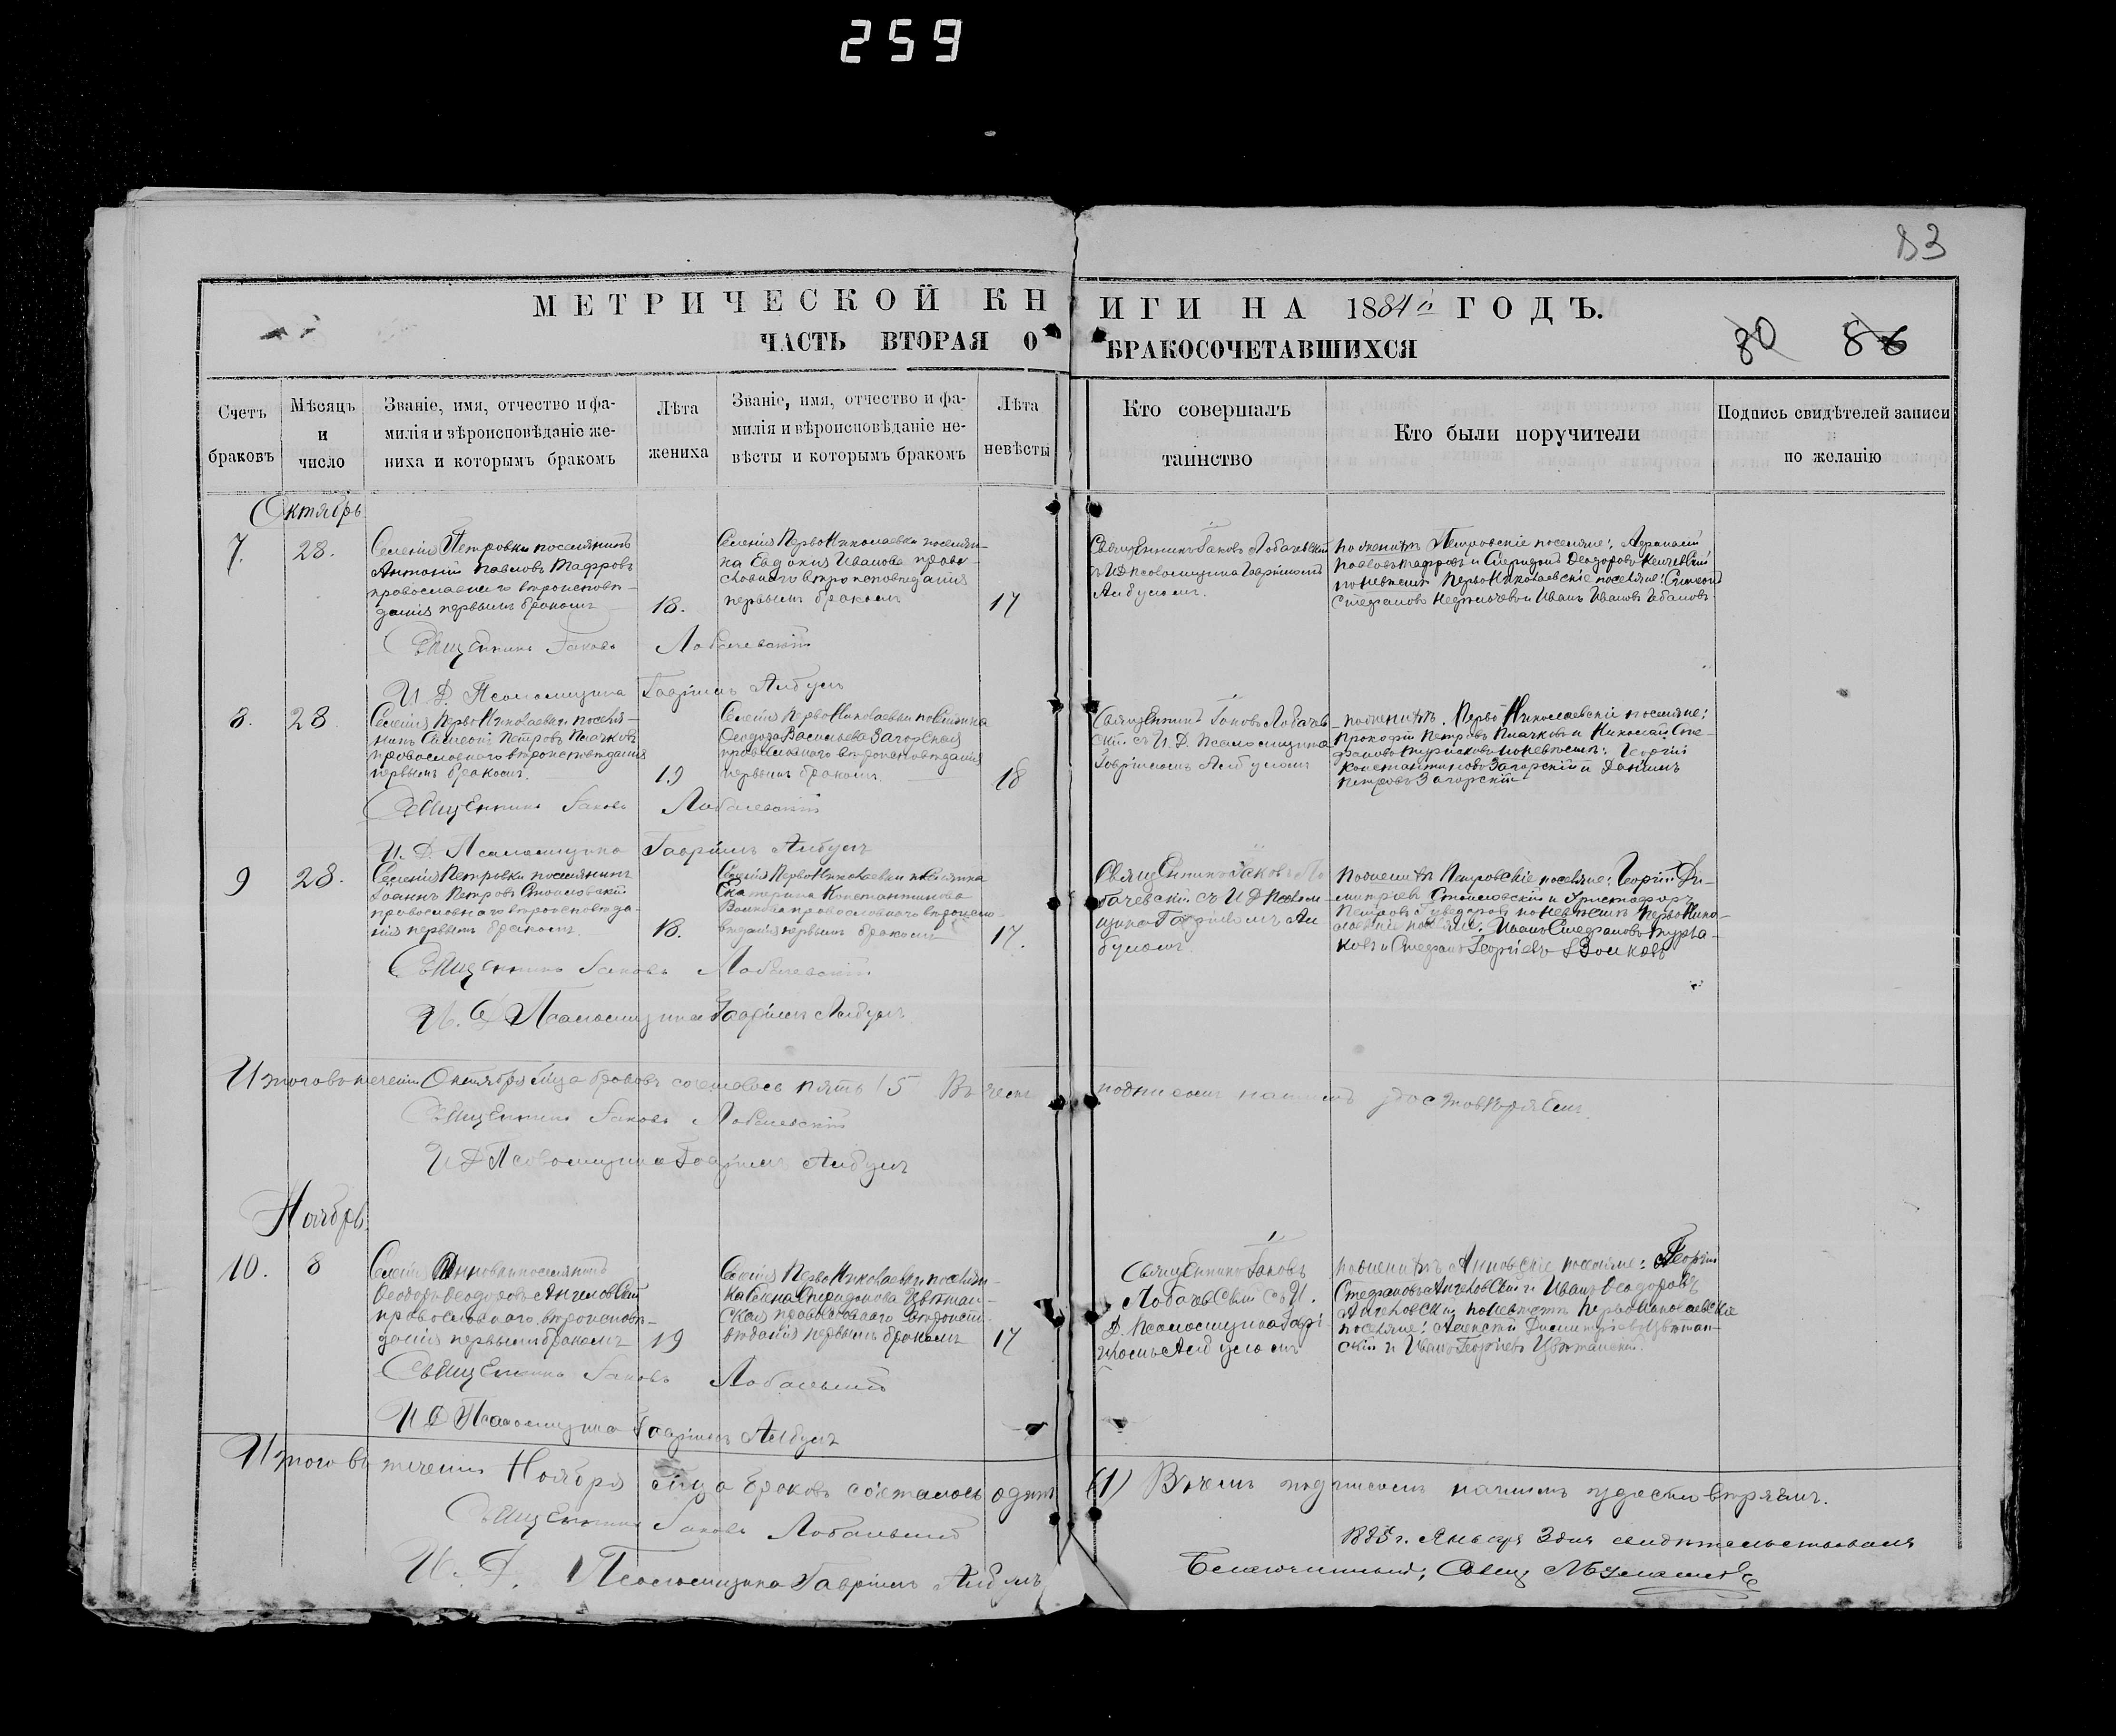 259
83
МЕТРИЧЕСКОЙ КНИГИ НА 1884й ГОДЪ.
ЧАСТЬ ВТОРАЯ О БРАКОСОЧЕТАВШИХСЯ
80 86
Счетъ браковъ
Мѣсяцъ и число
Званіе, имя, отчество и фа-
милія и вѣроисповѣданіе же-
ниха и которымъ бракомъ
Лѣта жениха
Званіе, имя, отчество и фа-
милія и вѣроисповѣданіе не-
вѣсты и которымъ бракомъ
Лѣта невѣсты
Кто совершалъ таинство
Кто были поручители
Подпись свидѣтелей записи
по желанію
Октябрь
7. 28.
Селенія Петровки поселянинъ
Антоній Павловъ Тафровъ
православнаго вѣроисповѣ-
данія первымъ бракомъ
18.
Селенія ПервоНиколаевки поселян-
ка Евдокия Иванова право-
славнаго вѣроисповѣданія
первымъ бракомъ
17
Священникъ Іаковъ Лобачевскій
съ И.Д. псаломщика Гавріиломъ
Албуломъ.
по женихѣ Петровскіе поселяне: Афанасій
Павловъ Тафровъ и Спиридонъ Ѳеодоровъ
по невѣстѣ ПервоНиколаевскіе поселяне: Симеонъ
Стефановъ и Иванъ Ивановъ
Священникъ Іаковъ Лобачевскій
И. Д. Псаломщика Гавріилъ Албулъ
8. 28
Селенія ПервоНиколаевки поселя-
нинъ Симеонъ Петровъ Плачковъ
православнаго вѣроисповѣданія
первымъ бракомъ.
19
Селенія ПервоНиколаевки поселянка
Ѳеодора Васильева Загорская
православнаго вѣроисповѣданія
первымъ бракомъ.
18
Священникъ Іаковъ Лобачев-
скій съ И. Д. Псаломщика
Гавріиломъ Албуломъ
по женихѣ. ПервоНиколаевскіе поселяне:
Прокофій Петровъ Плачковъ и Николай Сте-
фановъ по невѣстѣ: Георгій
Константиновъ Загорскій и Даніилъ
Петровъ Загорскій
Священникъ Іаковъ Лобачевскій
И. Д. Псаломщика Гавріилъ Албулъ
9 28.
Селенія Петровки поселянинъ
Іоаннъ Петровъ Стоиловскій
православнаго вѣроисповѣда-
нія первымъ бракомъ.
18.
Селенія ПервоНиколаевки поселянка
Екатерина Константинова
Волкова православнаго вѣроиспо-
вѣданія первымъ бракомъ
17.
Священникъ Іаковъ Ло-
бачевскій съ И Д Псалом-
щика Гавріиломъ Ал-
буломъ
По женихѣ Петровскіе поселяне: Георгій Ди-
митріевъ Стоиловскій и Христофоръ
Петровъ по невѣстѣ ПервоНико-
лаевскіе поселяне: Иванъ Стефановъ
и Стефанъ Георгіевъ Волковъ
Священникъ Іаковъ Лобачевскій
И. Д. Псаломщика Гавріилъ Албулъ
Итого въ теченіи Октября м-ца браковъ сочеталось пять (5 В чемъ подписомъ нашимъ удостовѣряемъ.
Священникъ Іаковъ Лобачевскій
И Д Псаломщика Гавріилъ Албулъ
Ноябрь
10. 8
Селенія Анновки поселянинъ
Ѳеодоръ Ѳеодоровъ Ангеловскій
православнаго вѣроисповѣ-
данія первымъ бракомъ
19
Селенія ПервоНиколаевки поселян-
ка Елена Спиридонова Цвѣтан-
ская православнаго вѣроиспо-
вѣданія первымъ бракомъ
17
Священникъ Іаковъ
Лобачевскій съ И.
Д. Псаломщика Гаврі-
иломъ Албуломъ
по женихѣ Анновскіе поселяне: Георгій
Стефановъ Ангеловскій и Иванъ Ѳеодоровъ
Ангеловскій по невѣстѣ ПервоНиколаевскіе
поселяне: Алексѣй Димитріевъ Цвѣтан-
скій и Иванъ Георгіевъ Цвѣтанскій.
Священникъ Іаковъ Лобачевскій
И Д Псаломщика Гавріилъ Албулъ
Итого въ теченіи Ноября м-ца браковъ сочеталось одинъ (1) В чемъ подписомъ нашимъ удостовѣряемъ.
Священникъ Іаковъ Лобачевскій
И. Д. Псаломщика Гавріилъ Албулъ
1885 г. Января 3 дня свидѣтельствовалъ
Благочинный: Свящ.